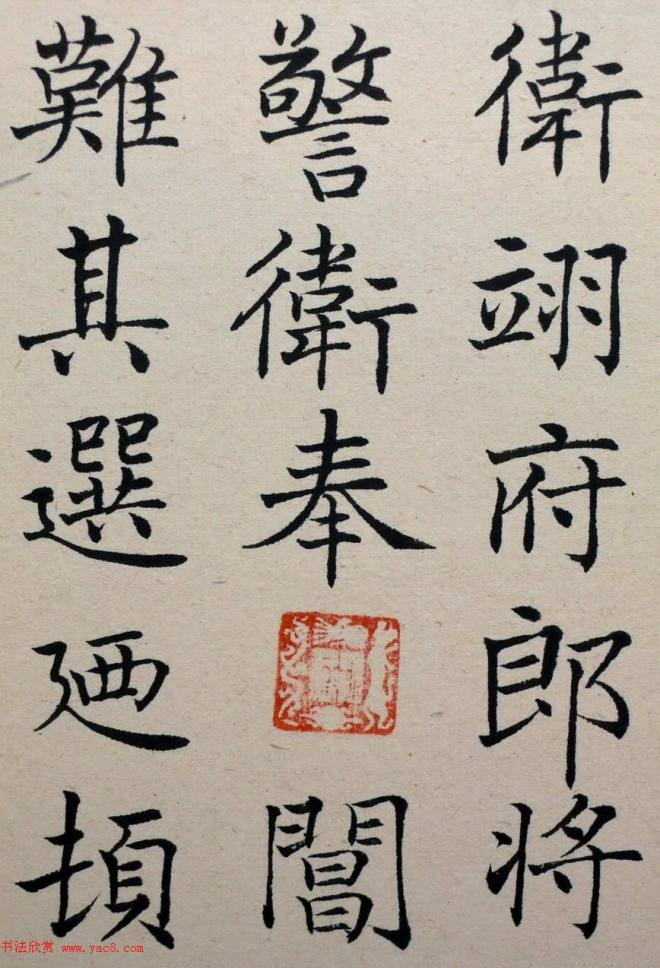 衛翊府郎将
警衛奉閶
難其選廼頓
书法欣赏 www.yac8.com